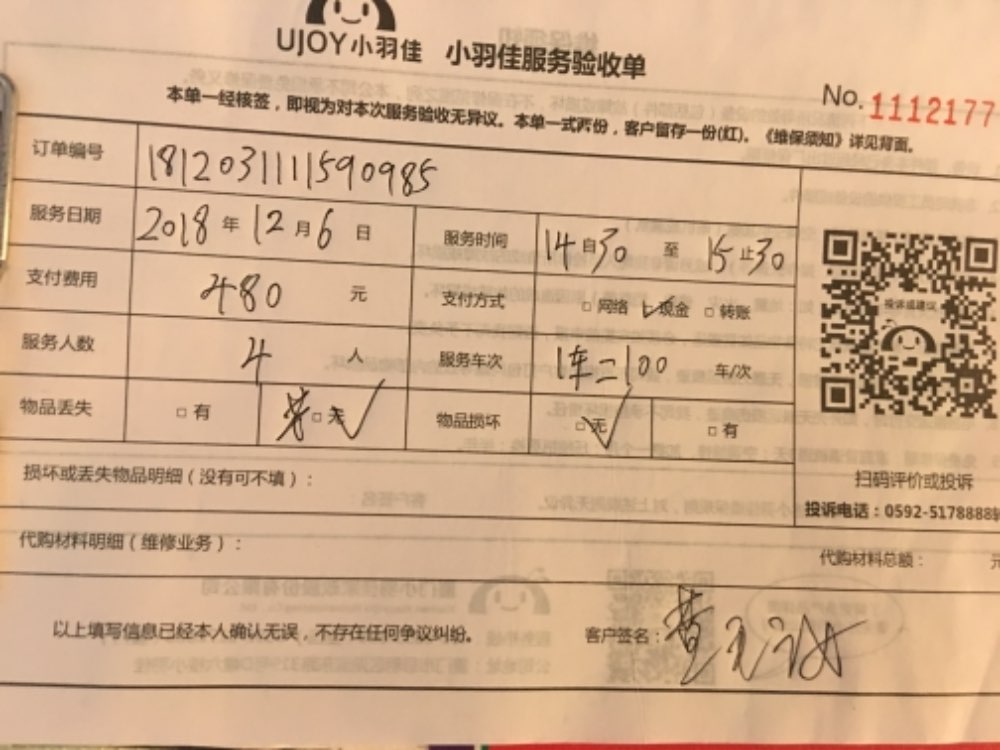 UJOY小羽佳 小羽佳服务验收单
No.1112177
本单一经核签，即视为对本次服务验收无异议。本单一式两份，客户留存一份(红)。《维保须知》详见背面。
订单编号 181203111590985
服务日期 2018 年 12 月 6 日 服务时间 14 自 30 至 15 止 30
支付费用 480 元 支付方式 □网络 □现金 □转账
服务人数 4 人 服务车次 1车=100 车/次
物品丢失 □有 □无 物品损坏 □无 □有
投诉或建议
扫码评价或投诉
损坏或丢失物品明细（没有可不填）：
投诉电话：0592-5178888转
代购材料明细（维修业务）：
代购材料总额： 元
以上填写信息已经本人确认无误，不存在任何争议纠纷。 客户签名：